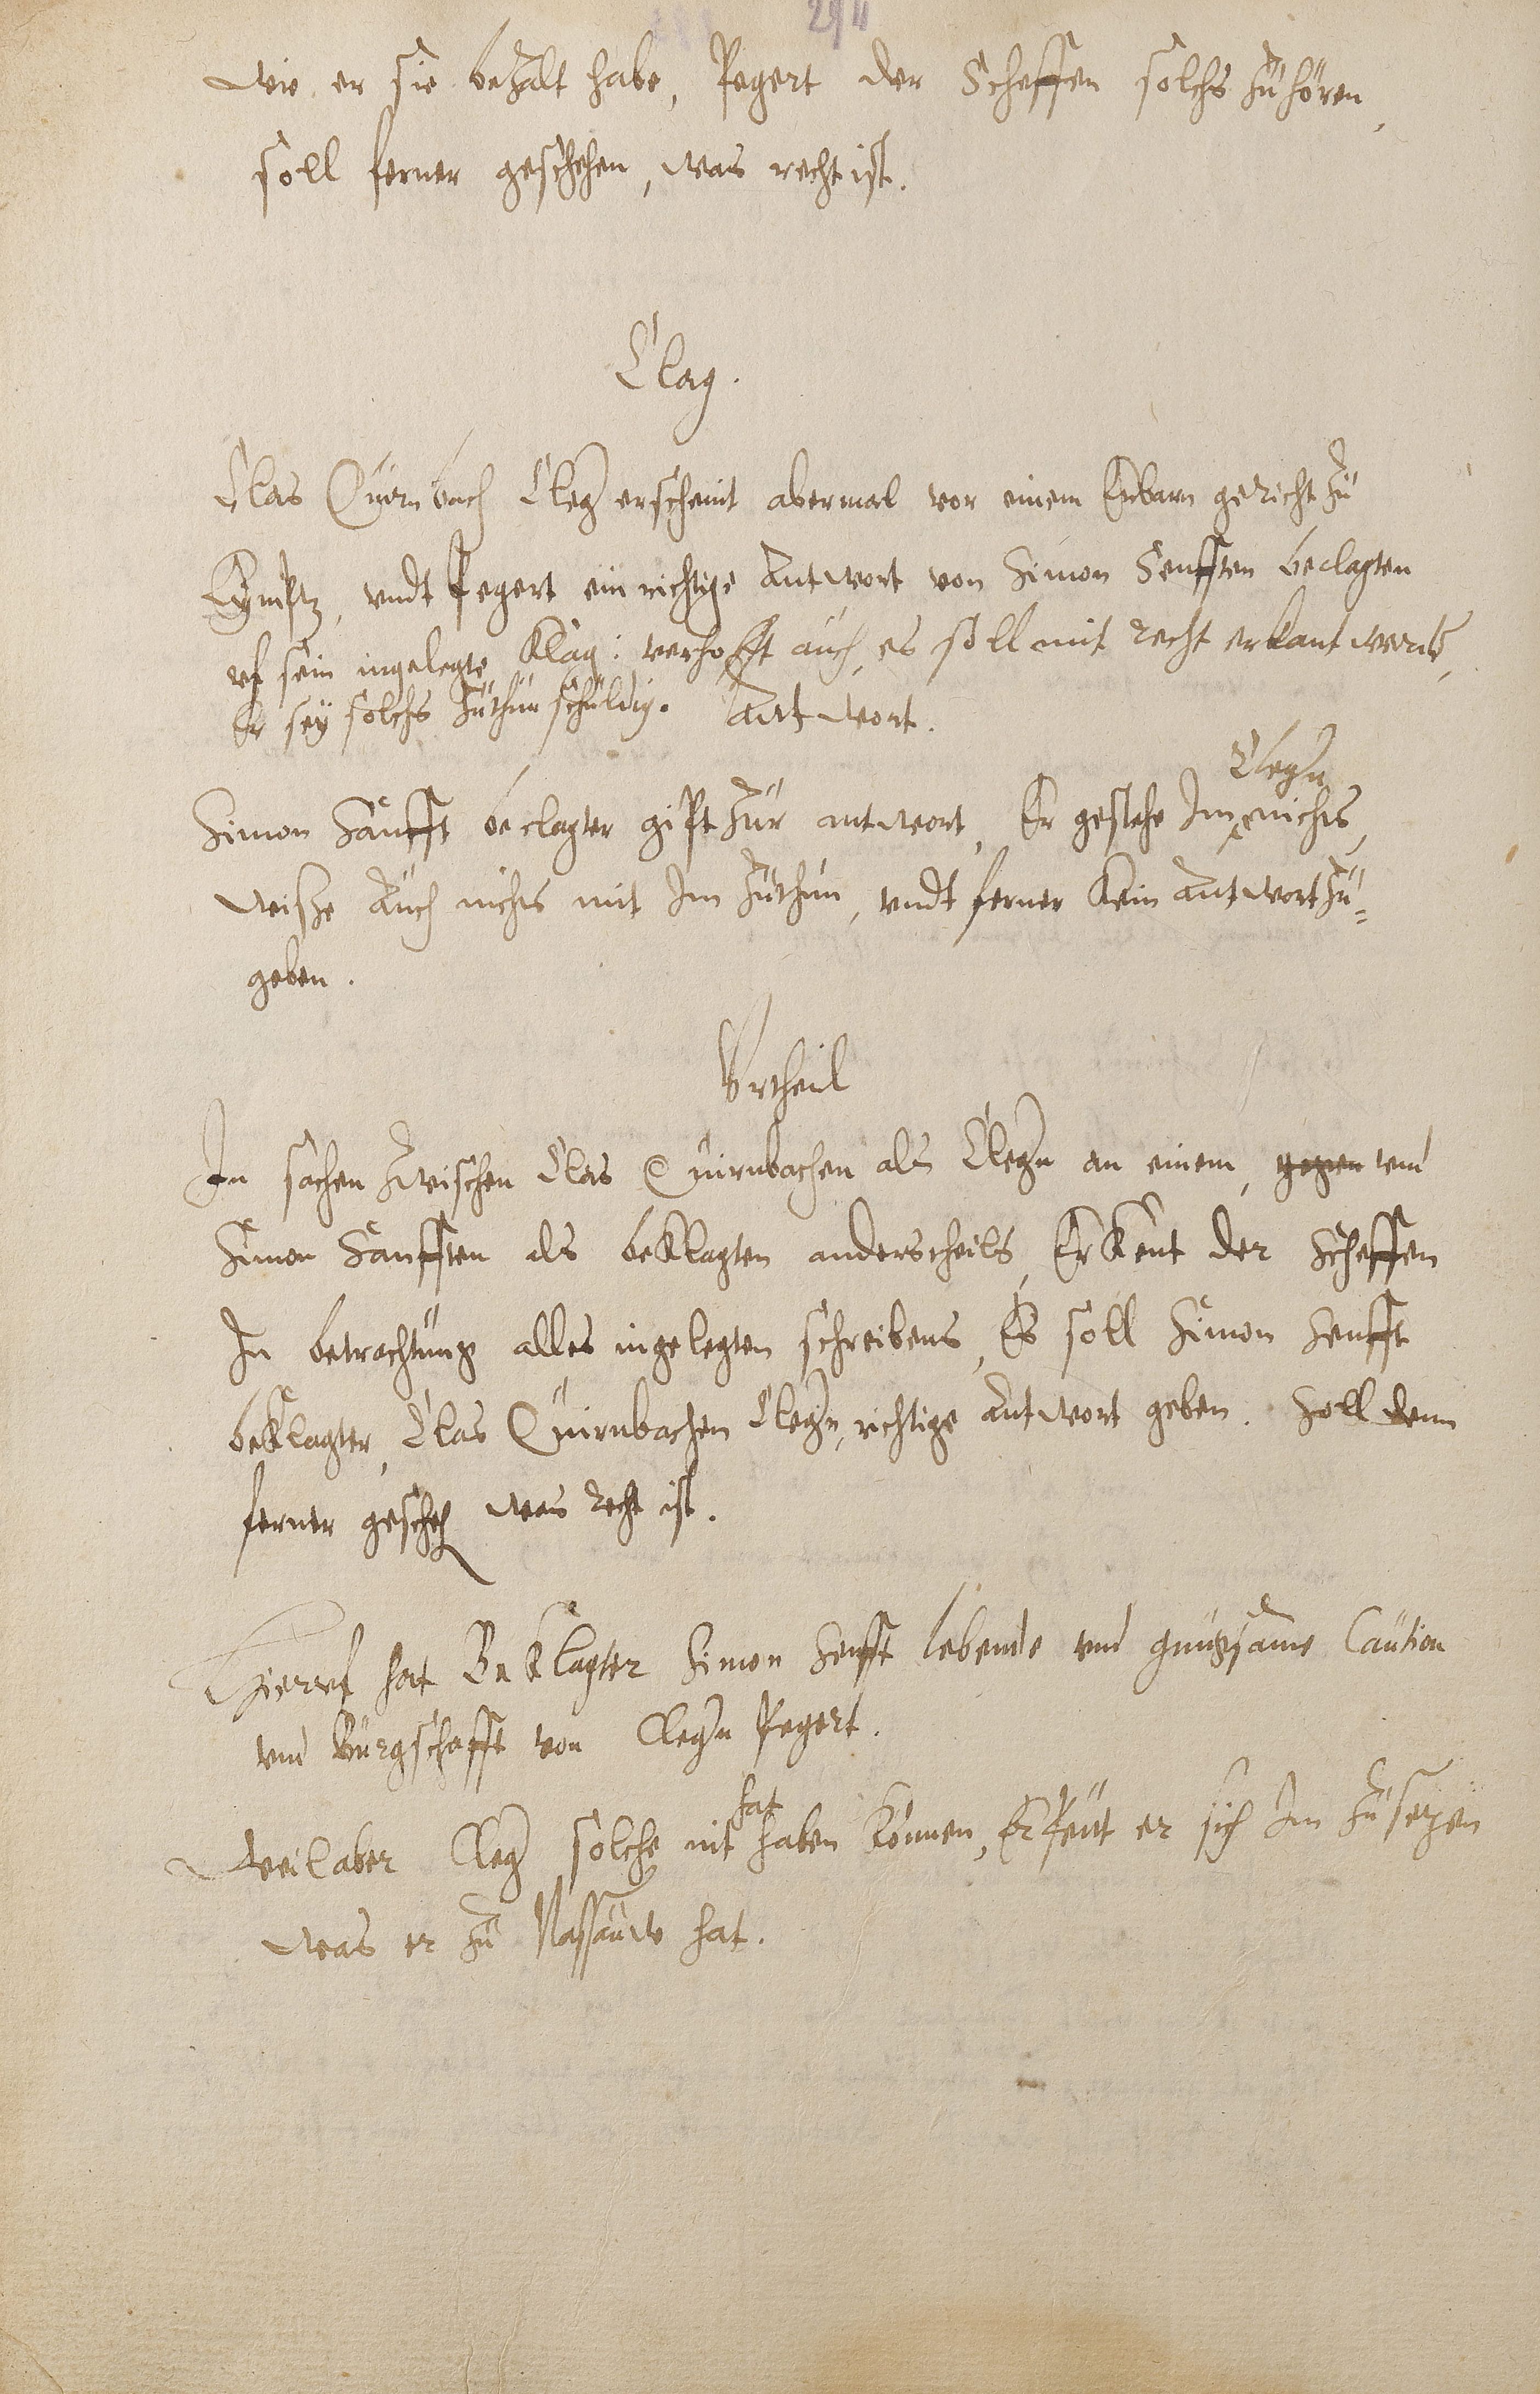 294
wie er sie bezalt habe, Begert der Scheffen solchs zuhören,
soll ferner geschehen, was recht ist.
Clag.
Clas Quirnbach Cleg erscheint abermal vor einem Erbarn gericht zu
vndt Begert ein richtige Antwort von Simon Senfften beclagten
vf sein ingelegte Klag: verhofft auch, es soll mit recht erkant werd,
Er sey solchs zuthun schuldig. Antwort.
Clegn
Simon Sänfft beclagter gibt zur antwort, Er gestehe Im nichts,
weiße Auch nichts mit Im zuthun, vndt ferner Kein Antwort zu=
geben.
Vrtheil
In sachen zwischen Clas Quirnbachen als Clegn an einem, gegen vnd
Simon Sänfften als beklagten anderstheils, Erkent der Scheffen
In betrachtung alles ingelegten schreibens, Es soll Simon Senfft
beklagter, Clas Quirnbachen Clegn, richtige Antwort geben. Soll denn
ferner gescheh was recht ist.
Hieruf hat Beklagter Simon Senfft lebende vnd gnugsame Caution
vnd Bürgschafft von Clegn Begert.
hat
Weil aber Cleg solche nit haben können, Erbeut er sich Im zusetzen
was er zu Nassauw hat.